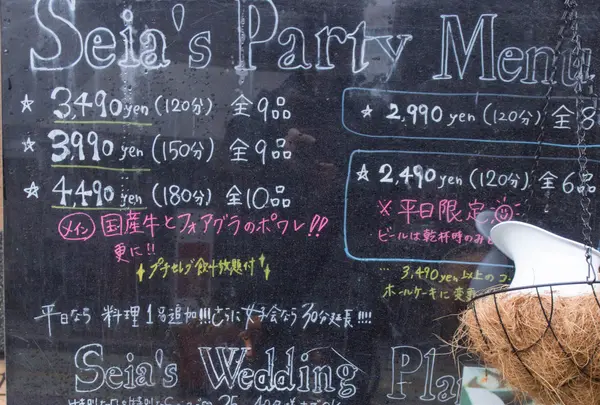 Seia's Party Menu
☆ 3,490 yen (120分) 全9品
☆ 3,990 yen (150分) 全9品
☆ 4,490 yen (180分) 全10品
メイン 国産牛とフォアグラのポワレ!!
更に!!
プチセレブ飲み放題付
☆ 2,990 yen (120分) 全8
☆ 2,490 yen (120分) 全6品
※平日限定
ビールは乾杯時のみ
… 3,490yen以上のコ
ホールケーキに変
平日なら 料理1品追加!!! さらに女子会なら30分延長!!!!
Seia's Wedding Pla